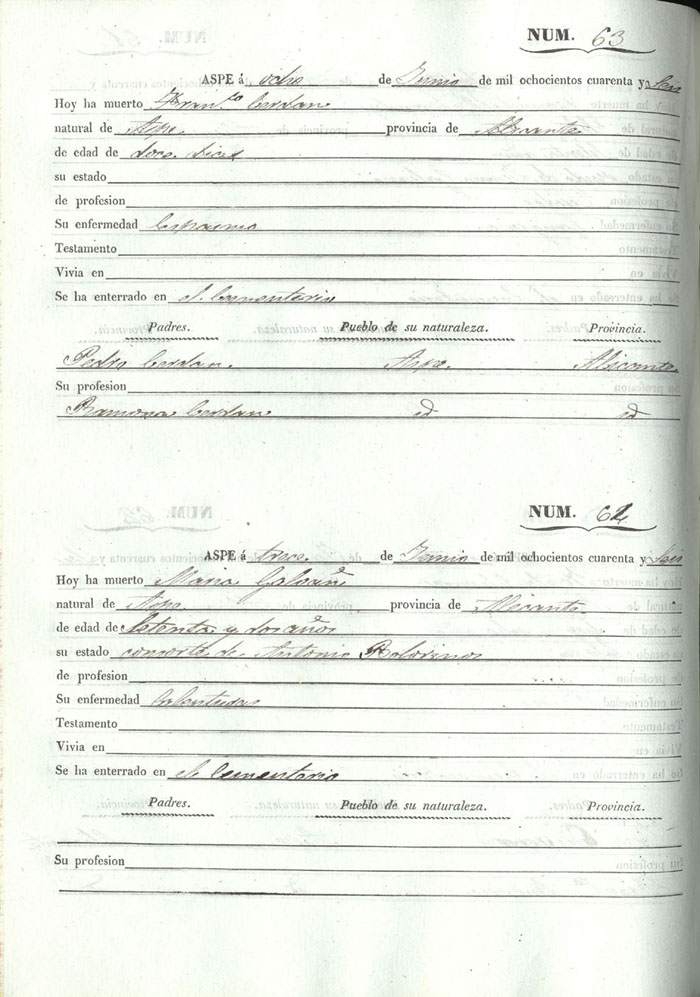 NUM. 63
ASPE á ocho de Junio de mil ochocientos cuarenta y seis
Hoy ha muerto Fran.co Cerdan
natural de Aspe provincia de Alicante
de edad de doce dias
su estado
de profesion
Su enfermedad Espasmo
Testamento
Vivia en
Se ha enterrado en el Cementerio
Padres. Pueblo de su naturaleza. Provincia.
Pedro Cerdan. Aspe. Alicante
Su profesion
Ramona Cerdan id id
NUM. 64
ASPE á trece de Junio de mil ochocientos cuarenta y seis
Hoy ha muerto Maria Galvañ
natural de Aspe provincia de Alicante
de edad de setenta y dos años
su estado consorte de Antonio
de profesion
Su enfermedad Calenturas
Testamento
Vivia en
Se ha enterrado en el Cementerio
Padres. Pueblo de su naturaleza. Provincia.
Su profesion